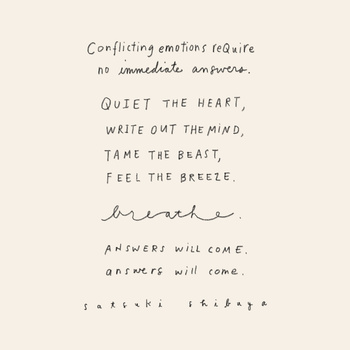 Conflicting emotions reQuire
no immediate answers.
QUIET THE HEART,
WRITE OUT THE MIND,
TAME THE BEAST,
FEEL THE BREEZE.
breathe.
ANSWERS WILL COME.
answers will come.
satsuki shibuya